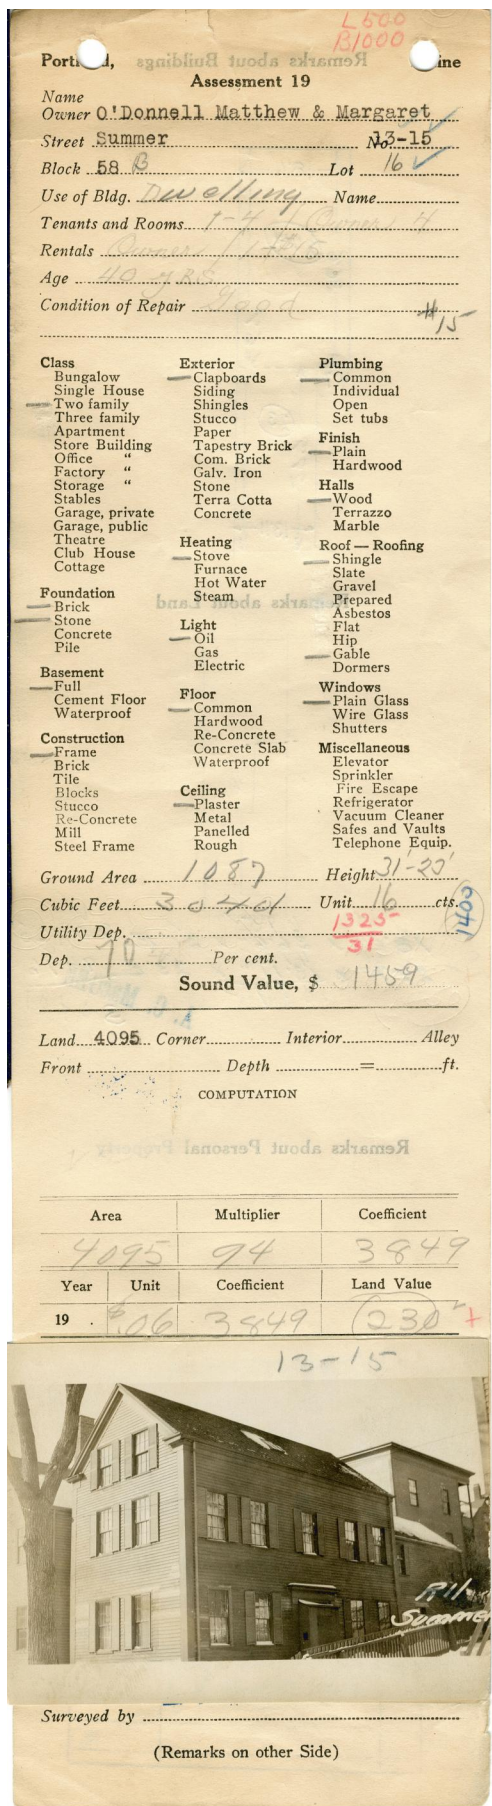 L500
B1000
Portland, Maine
Assessment 19
Name
Owner O'Donnell Matthew & Margaret
Street Summer No 13-15
Block 58 B Lot 16 ✓
Use of Bldg. Dwelling Name
Tenants and Rooms 1-4 Owner 4
Rentals Owner 1-$15
Age 40 yrs
Condition of Repair Good
#15
Class
Bungalow
Single House
Two family
Three family
Apartment
Store Building
Office "
Factory "
Storage "
Stables
Garage, private
Garage, public
Theatre
Club House
Cottage
Foundation
Brick
Stone
Concrete
Pile
Basement
Full
Cement Floor
Waterproof
Construction
Frame
Brick
Tile
Blocks
Stucco
Re-Concrete
Mill
Steel Frame
Exterior
Clapboards
Siding
Shingles
Stucco
Paper
Tapestry Brick
Com. Brick
Galv. Iron
Stone
Terra Cotta
Concrete
Heating
Stove
Furnace
Hot Water
Steam
Light
Oil
Gas
Electric
Floor
Common
Hardwood
Re-Concrete
Concrete Slab
Waterproof
Ceiling
Plaster
Metal
Panelled
Rough
Plumbing
Common
Individual
Open
Set tubs
Finish
Plain
Hardwood
Halls
Wood
Terrazzo
Marble
Roof — Roofing
Shingle
Slate
Gravel
Prepared
Asbestos
Flat
Hip
Gable
Dormers
Windows
Plain Glass
Wire Glass
Shutters
Miscellaneous
Elevator
Sprinkler
Fire Escape
Refrigerator
Vacuum Cleaner
Safes and Vaults
Telephone Equip.
Ground Area 1087 Height 31'-23'
Cubic Feet Unit 16 cts.
1400
Utility Dep. 1325
31
Dep. 70 Per cent.
Sound Value, $ 1459
Land 4095 Corner Interior Alley
Front Depth = ft.
COMPUTATION
Remarks about Personal Property
Area Multiplier Coefficient
4095 94 3849
Year Unit Coefficient Land Value
19 . $.06 3849 230 +
13-15
R11
Summer
Surveyed by
(Remarks on other Side)